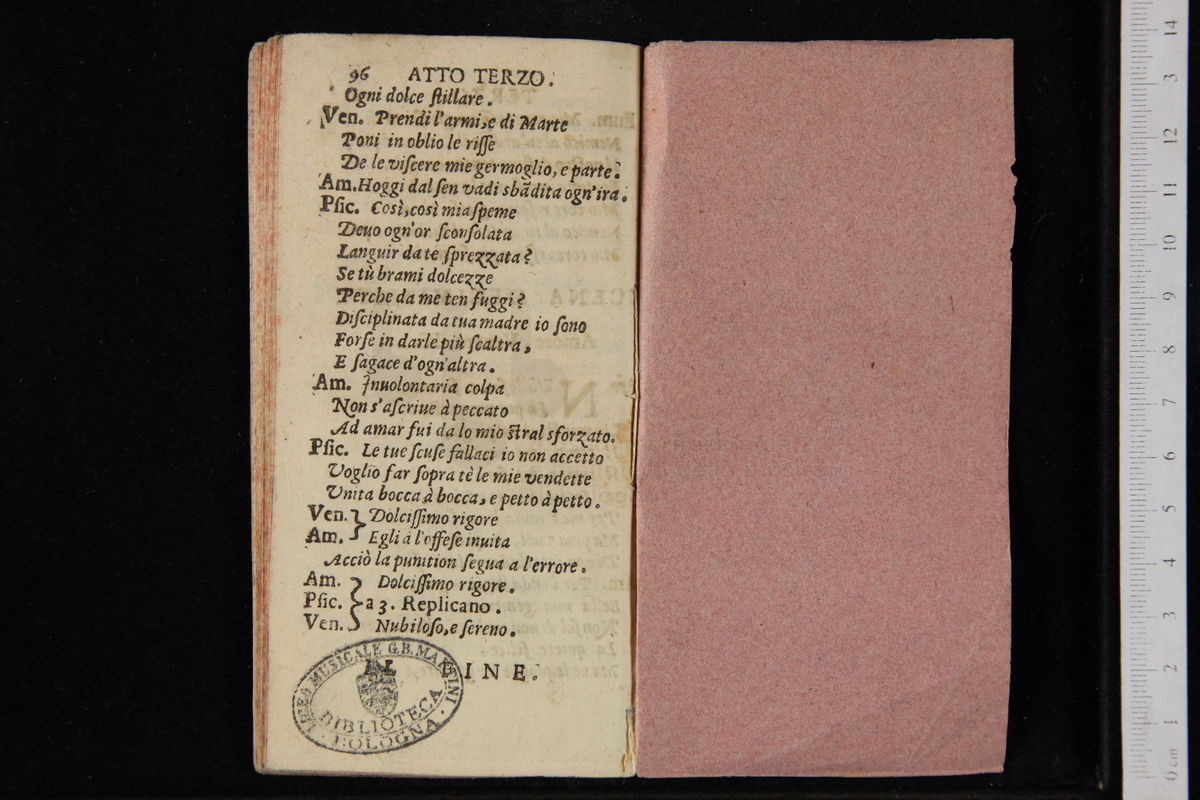 96 ATTO TERZO.
Ogni dolce ſtillare.
Ven. Prendi l'armi, e di Marte
Poni in oblio le riſſe
De le viſcere mie germoglio, e parte.
Am. Hoggi dal ſen vadi sbãdita ogn'ira.
Pſic. Così, così mia ſpeme
Deuo ogn'or ſconſolata
Languir da te ſprezzata?
Se tù brami dolcezze
Perche da me ten fuggi?
Diſciplinata da tua madre io ſono
Forſe in darle più ſcaltra,
E ſagace d'ogn'altra.
Am. Inuolontaria colpa
Non s'aſcriue à peccato
Ad amar fui da lo mio ſtral sforzato.
Pſic. Le tue ſcuſe fallaci io non accetto
Voglio far ſopra tè le mie vendette
Vnita bocca à bocca, e petto à petto.
Ven. } Dolciſſimo rigore
Am. } Egli à l'offeſe inuita
Acciò la punition ſegua a l'errore.
Am. } Dolciſſimo rigore.
Pſic. } a 3. Replicano.
Ven. } Nubiloſo, e ſereno.
INE.
LICEO MUSICALE G.B. MARTINI
BIBLIOTECA
BOLOGNA
0 cm 1 2 3 4 5 6 7 8 9 10 11 12 3 14